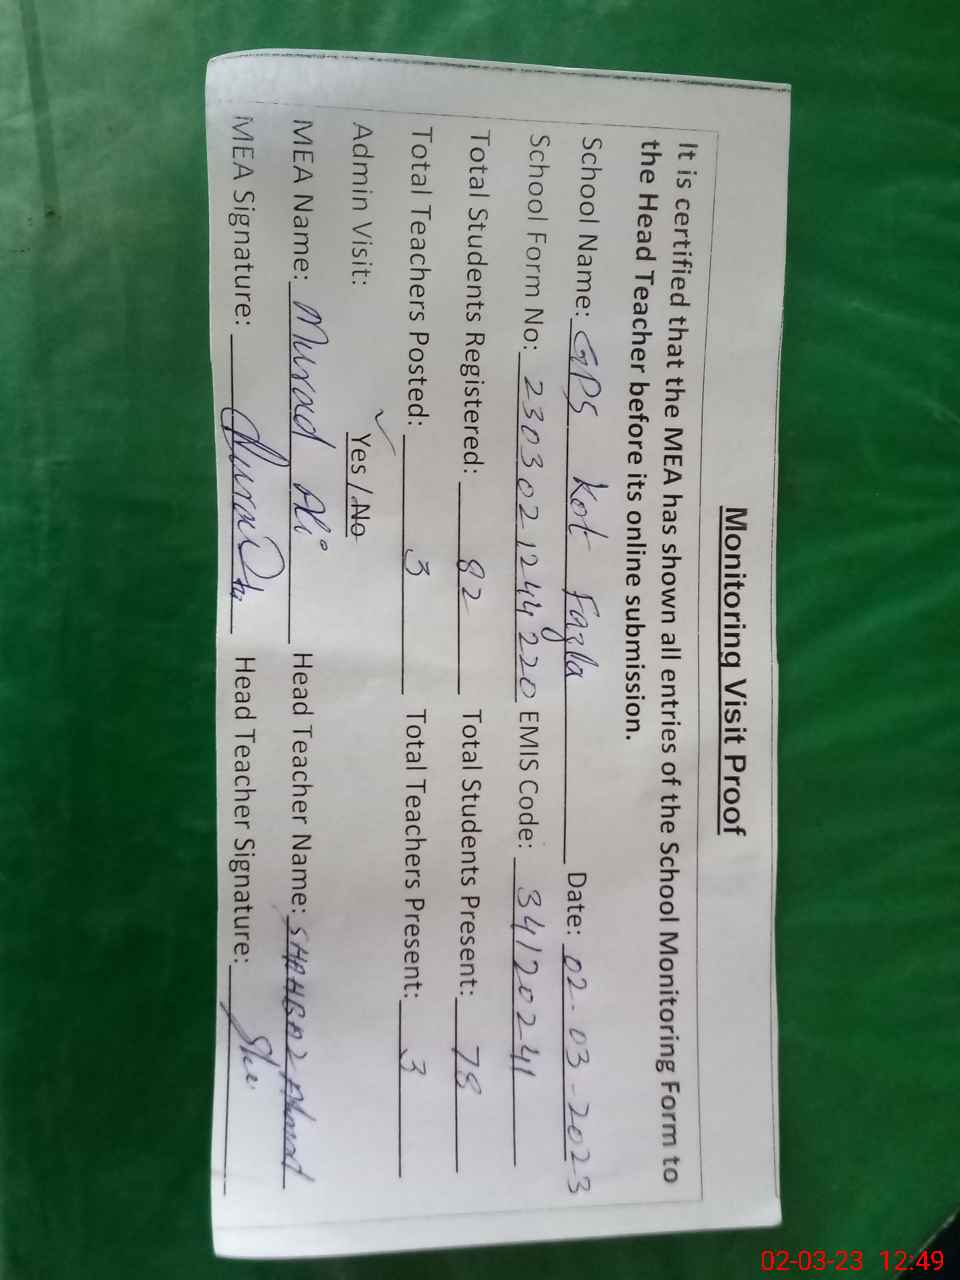 Monitoring Visit Proof
It is certified that the MEA has shown all entries of the School Monitoring Form to
the Head Teacher before its online submission.
School Name: GPS Kot Fazla Date: 02-03-2023
School Form No: 2303021244220 EMIS Code: 34120241
Total Students Registered: 82 Total Students Present: 78
Total Teachers Posted: 3 Total Teachers Present: 3
Admin Visit: Yes / No
MEA Name: Murad Ali Head Teacher Name: SHAHBAZ Ahmad
MEA Signature: Murad Ali Head Teacher Signature:
02-03-23 12:49